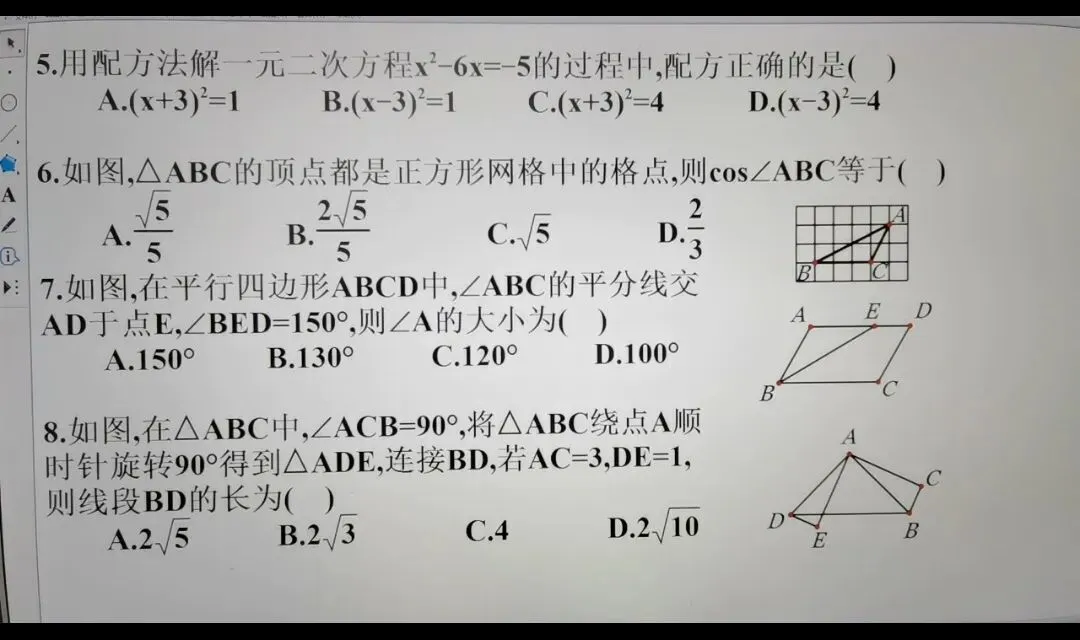 5.用配方法解一元二次方程x²−6x=−5的过程中,配方正确的是( )
A.(x+3)²=1 B.(x−3)²=1 C.(x+3)²=4 D.(x−3)²=4
6.如图,△ABC的顶点都是正方形网格中的格点,则cos∠ABC等于( )
A.√5/5 B.2√5/5 C.√5 D.2/3
A
B C
7.如图,在平行四边形ABCD中,∠ABC的平分线交
AD于点E,∠BED=150°,则∠A的大小为( )
A.150° B.130° C.120° D.100°
A E D
B C
8.如图,在△ABC中,∠ACB=90°,将△ABC绕点A顺
时针旋转90°得到△ADE,连接BD,若AC=3,DE=1,
则线段BD的长为( )
A.2√5 B.2√3 C.4 D.2√10
A
C
D E B
A